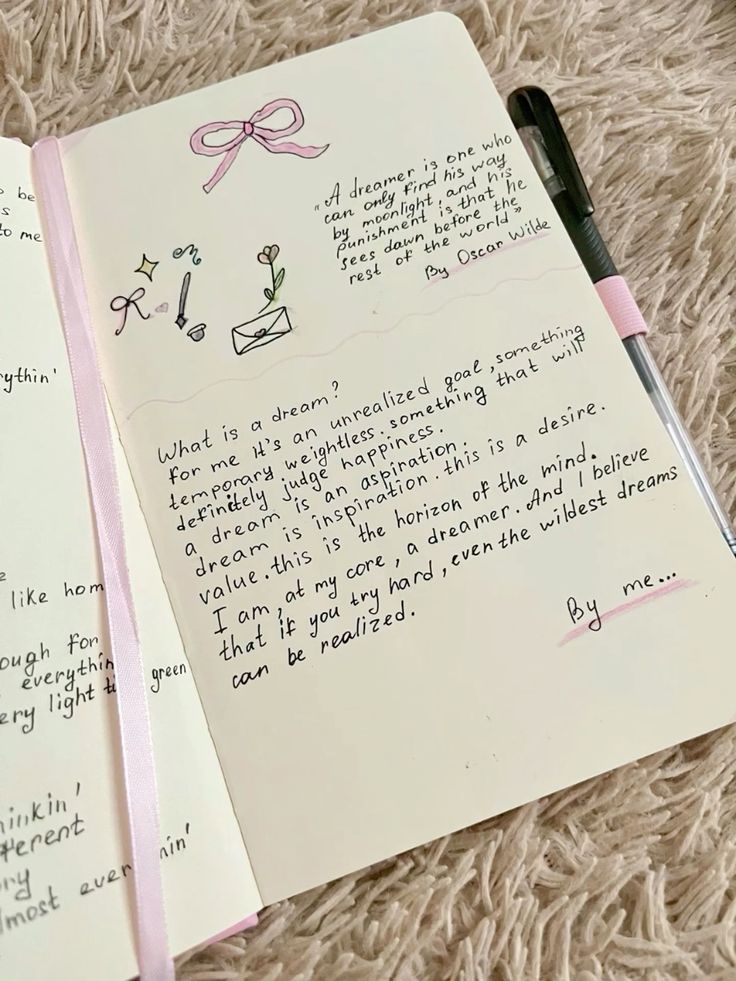 o be
s
to me
ythin'
like hom
ough for
everythin
ery light green
hinkin'
fferent
ry
lmost ever nin'
„A dreamer is one who
can only find his way
by moonlight, and his
punishment is that he
sees dawn before the
rest of the world”
By Oscar Wilde
What is a dream?
for me it's an unrealized goal, something
temporary weightless. something that will
definitely judge happiness.
a dream is an aspiration.
dream is inspiration. this is a desire.
value. this is the horizon of the mind.
I am, at my core, a dreamer. And I believe
that if you try hard, even the wildest dreams
can be realized.
By me...